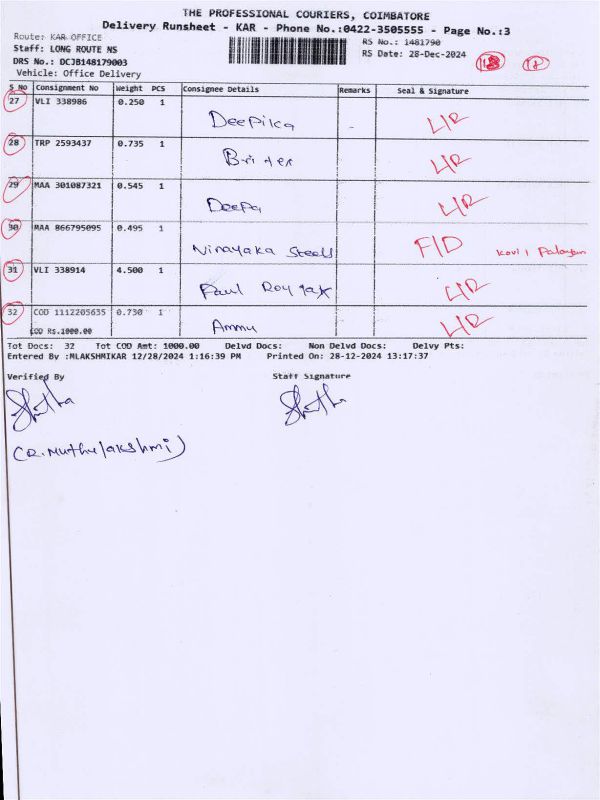 THE PROFESSIONAL COURIERS, COIMBATORE
Delivery Runsheet - KAR - Phone No.:0422-3505555 - Page No.:3
Route: KAR OFFICE
RS No.: 1481790
Staff: LONG ROUTE NS
RS Date: 28-Dec-2024
DRS No.: DCJB148179003
Vehicle: Office Delivery
S No Consignment No Weight PCS Consignee Details Remarks Seal & Signature
27 VLI 338986 0.250 1 Deepika - L/R
28 TRP 2593437 0.735 1 L/R
29 MAA 301087321 0.545 1 Deepa L/R
30 MAA 866795095 0.495 1 Vinayaka Steels F/D
31 VLI 338914 4.500 1 Paul Roy L/R
32 COD 1112205635 0.730 1 Ammu L/R
COD Rs.1000.00
Tot Docs: 32 Tot COD Amt: 1000.00 Delvd Docs: Non Delvd Docs: Delvy Pts:
Entered By :MLAKSHMIKAR 12/28/2024 1:16:39 PM Printed On: 28-12-2024 13:17:37
Verified By Staff Signature
(R. Muthulakshmi)